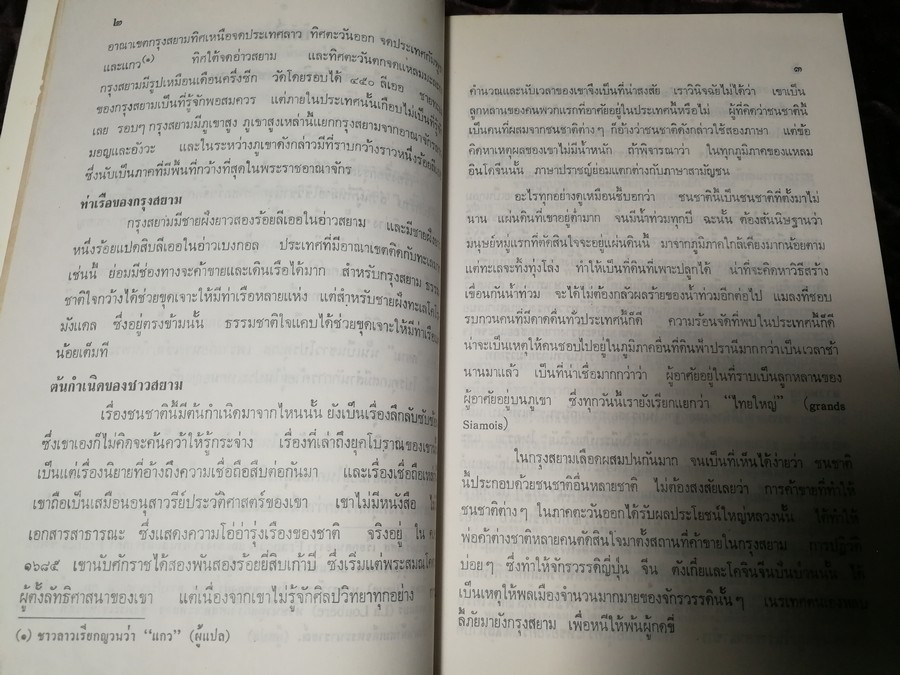 ๒
อาณาเขตกรุงสยามทิศเหนือจดประเทศลาว ทิศตะวันออก จดประเทศกัมพูชา
และแกว(๑) ทิศใต้จดอ่าวสยาม และทิศตะวันตกจดแหลมมะละกา
กรุงสยามมีรูปเหมือนเดือนครึ่งซีก วัดโดยรอบได้ ๔๕๐ ลีเออ
ของกรุงสยามเป็นที่รู้จักพอสมควร แต่ภายในประเทศนั้นเกือบไม่เป็นที่รู้จัก
เลย รอบๆ กรุงสยามมีภูเขาสูง ภูเขาสูงเหล่านี้แยกกรุงสยามจากอาณาจักร
มอญและอังวะ และในระหว่างภูเขาดังกล่าวมีที่ราบกว้างราวหนึ่งร้อยลีเออ
ซึ่งนับเป็นภาคที่มีพื้นที่กว้างที่สุดในพระราชอาณาจักร
ท่าเรือของกรุงสยาม
กรุงสยามมีชายฝั่งยาวสองร้อยลีเออในอ่าวสยาม และมีชายฝั่ง
หนึ่งร้อยแปดสิบลีเออในอ่าวเบงกอล ประเทศที่มีอาณาเขตติดกับทะเล
เช่นนี้ ย่อมมีช่องทางจะค้าขายและเดินเรือได้มาก สำหรับกรุงสยาม ธรรม
ชาติใจกว้างได้ช่วยขุดเจาะให้มีท่าเรือหลายแห่ง แต่สำหรับชายฝั่งทะเลโคโร
มังแดล ซึ่งอยู่ตรงข้ามนั้น ธรรมชาติใจแคบได้ช่วยขุดเจาะให้มีท่าเรือ
น้อยเต็มที
ต้นกำเนิดของชาวสยาม
เรื่องชนชาตินี้มีต้นกำเนิดมาจากไหนนั้น ยังเป็นเรื่องลึกลับซับซ้อน
ซึ่งเขาเองก็ไม่คิดจะค้นคว้าให้รู้กระจ่าง เรื่องที่เล่าถึงยุคโบราณของเขา
เป็นแต่เรื่องนิยายที่อ้างถึงความเชื่อถือสืบต่อกันมา และเรื่องเชื่อถือ
เขาถือเป็นเสมือนอนุสาวรีย์ประวัติศาสตร์ของเขา เขาไม่มีหนังสือ
เอกสารสาธารณะ ซึ่งแสดงความโอ่อ่ารุ่งเรืองของชาติ จริงอยู่ ใน
๑๖๘๕ เขานับศักราชได้สองพันสองร้อยยี่สิบเก้าปี ซึ่งเริ่มแต่พระสมณโคดม
ผู้ตั้งลัทธิศาสนาของเขา แต่เนื่องจากเขาไม่รู้จักศิลปวิทยาทุกอย่าง
(๑) ชาวลาวเรียกญวนว่า "แกว" (ผู้แปล)
๓
คำนวณและนับเวลาของเขาจึงเป็นที่น่าสงสัย เราวินิจฉัยไม่ได้ว่า เขาเป็น
ลูกหลานของคนพวกแรกที่อาศัยอยู่ในประเทศนี้หรือไม่ ผู้ที่คิดว่าชนชาตินี้
เป็นคนที่ผสมจากชนชาติต่างๆ ก็อ้างว่าชนชาติดังกล่าวใช้สองภาษา แต่ข้อ
คิดหาเหตุผลของเขาไม่มีน้ำหนัก ถ้าพิจารณาว่า ในทุกภูมิภาคของแหลม
อินโดจีนนั้น ภาษาปราชญ์ย่อมแตกต่างกับภาษาสามัญชน
อะไรทุกอย่างดูเหมือนชี้บอกว่า ชนชาตินี้เป็นชนชาติที่ตั้งมาไม่
นาน แผ่นดินที่เขาอยู่ต่ำมาก จนมีน้ำท่วมทุกปี ฉะนั้น ต้องสันนิษฐานว่า
มนุษย์หมู่แรกที่ตัดสินใจจะอยู่แผ่นดินนี้ มาจากภูมิภาคใกล้เคียงมากน้อยตาม
แต่ทะเลจะทิ้งทุ่งโล่ง ทำให้เป็นที่ดินที่เพาะปลูกได้ น่าที่จะคิดหาวิธีสร้าง
เขื่อนกันน้ำท่วม จะได้ไม่ต้องกลัวผลร้ายของน้ำท่วมอีกต่อไป แมลงที่ชอบ
รบกวนคนที่มีดาดดื่นทั่วประเทศนี้ก็ดี ความร้อนจัดที่พบในประเทศนี้ก็ดี
น่าจะเป็นเหตุให้คนชอบไปอยู่ในภูมิภาคอื่นที่ดินฟ้าปรานีมากกว่าเป็นเวลาช้า
นานมาแล้ว เป็นที่น่าเชื่อมากกว่าว่า ผู้อาศัยอยู่ในที่ราบเป็นลูกหลานของ
ผู้อาศัยอยู่บนภูเขา ซึ่งทุกวันนี้เรายังเรียกแยกว่า "ไทยใหญ่" (grands
Siamois)
ในกรุงสยามเลือดผสมปนกันมาก จนเป็นที่เห็นได้ง่ายว่า ชนชาติ
นี้ประกอบด้วยชนชาติอื่นหลายชาติ ไม่ต้องสงสัยเลยว่า การค้าขายที่ทำให้
ชนชาติต่างๆ ในภาคตะวันออกได้รับผลประโยชน์ใหญ่หลวงนั้น ได้ทำให้
พ่อค้าต่างชาติหลายคนตัดสินใจมาตั้งสถานที่ค้าขายในกรุงสยาม การปฏิวัติ
บ่อยๆ ซึ่งทำให้จักรวรรดิญี่ปุ่น จีน ตังเกี๋ยและโคจินจีนปั่นป่วนนั้น ได้
เป็นเหตุให้พลเมืองจำนวนมากมายของจักรวรรดินั้นๆ เนรเทศตนเอง
ลี้ภัยมายังกรุงสยาม เพื่อหนีให้พ้นผู้กดขี่